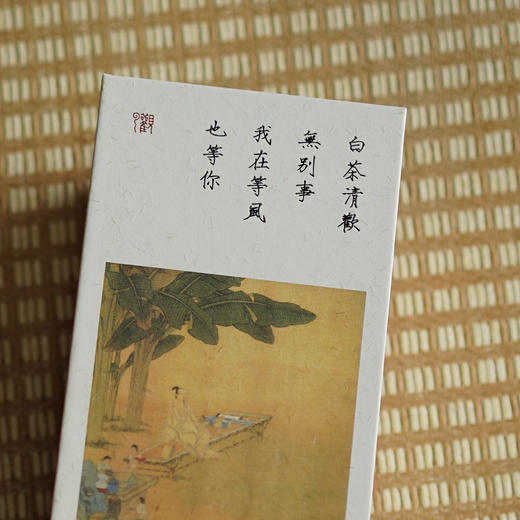 白茶清歡
無别事
我在等風
也等你